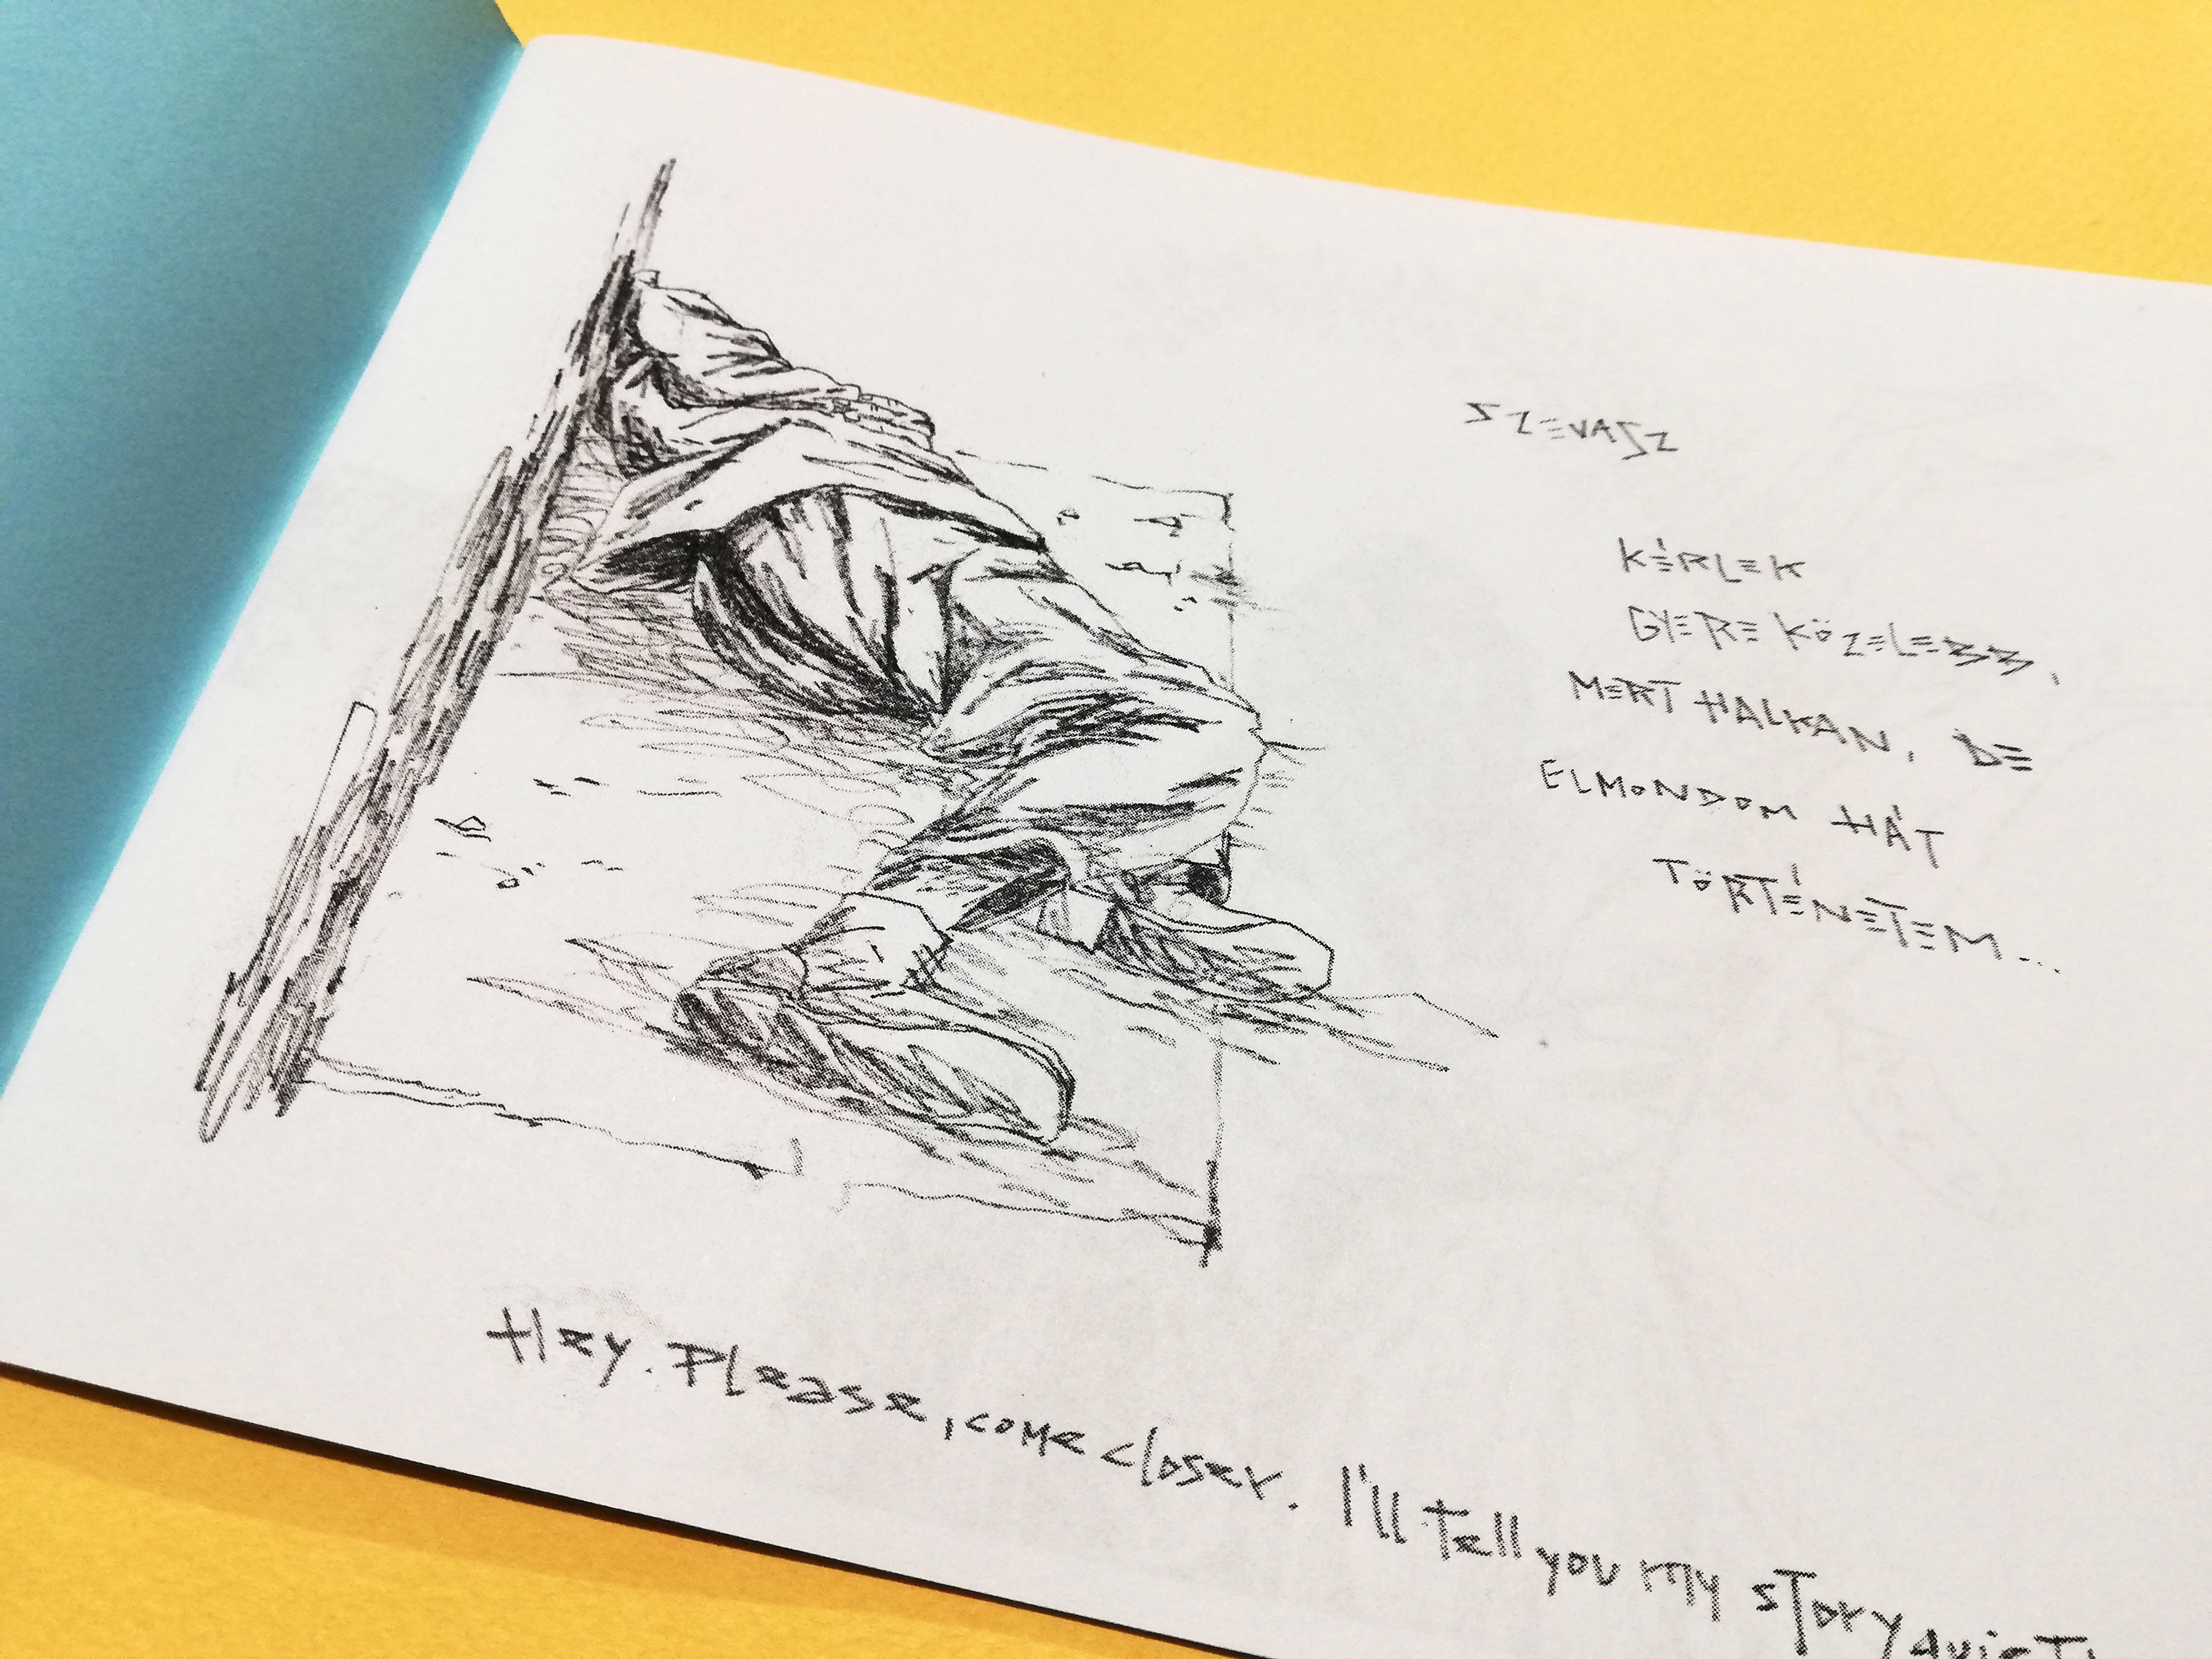 SZEVASZ
KÉRLEK
GYERE KÖZELEBB,
MERT HALKAN, DE
ELMONDOM HÁT
TÖRTÉNETEM...
Hey. Please, come closer. I'll tell you my story